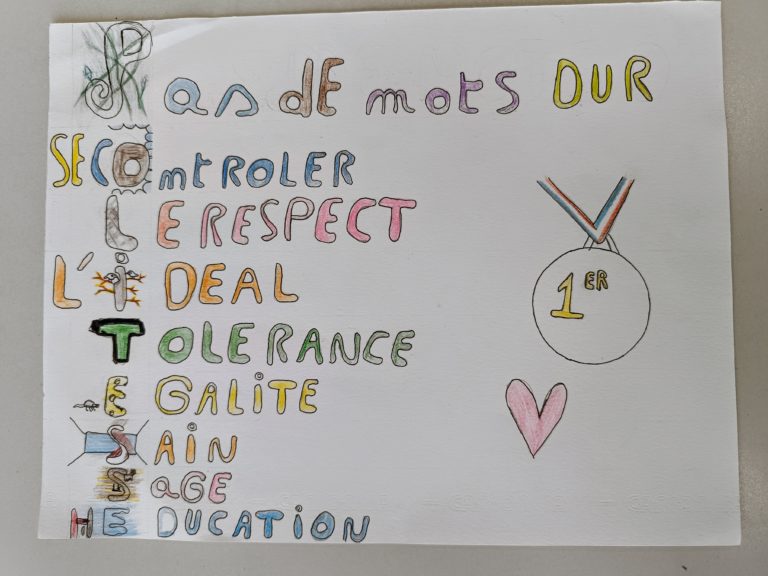 Pas dE mots DUR
SE COntROLER
LE RESPECT
L'iDEAL
TOLERANCE
EGALiTE
SAiN
SaGE
EDUCATiON
1ER